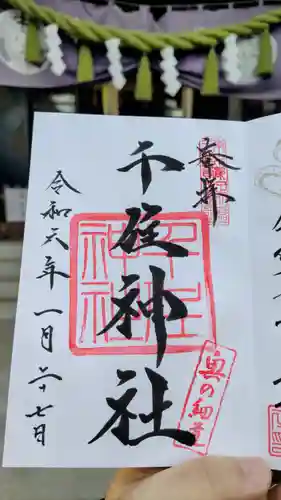 奉拝
千住神社
千住神社
奥の細道
令和六年一月二十七日